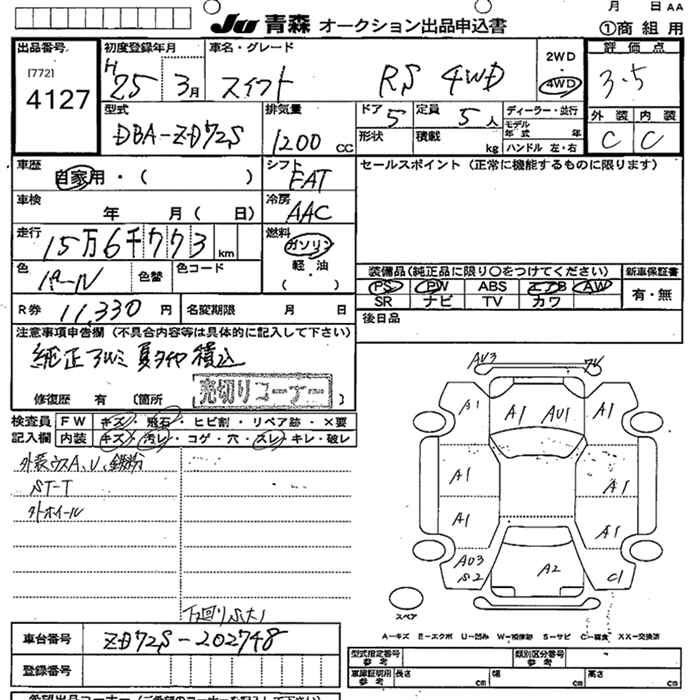 月 日 AA
JU 青森 オークション出品申込書 ①商 組 用
出品番号 初度登録年月 車名・グレード 2WD 評価点
[772] H 25 3月 スイフト RS 4WD 4WD 3.5
4127
型式 排気量 ドア 5 定員 5人 ディーラー・並行 外装 内装
DBA-ZD72S 1200 CC 形状 積載 kg モデル年式 年 C C
ハンドル 左・右
車歴 自家用・( ) シフト FAT セールスポイント(正常に機能するものに限ります)
車検 年 月( 日) 冷房 AAC
走行 15万6千773km 燃料 ガソリン
軽・油
( )
色 パール 色替 色コード
装備品(純正品に限り○をつけてください) 新車保証書
PS PW ABS エアB AW 有・無
SR ナビ TV カワ
R券 11,330円 名変期限 月 日
後日品
注意事項申告欄(不具合内容等は具体的に記入して下さい)
純正アルミ夏タイヤ積込
修復歴 有 〔箇所 〕
売切りコーナー
検査員 FW キズ・飛石・ヒビ割・リペア跡・×要
記入欄 内装 キズ・汚レ・コゲ・穴・スレ・キレ・破レ
外装ウスA、U、鉄粉
ST-T
外ホイール
下回りS大1
AU3
A1 A1 AU1 A1
A1 A1
A1 A1
AU3
S2 A2 C1
スペア
A-キズ E-エクボ U-凹み W-補修跡 S-サビ C-腐食 XX-交換済
車台番号 ZD72S-202748
登録番号
型式指定番号 参考 類別区分番号 参考
車庫証明用 参考 長さ cm 幅 cm 高さ cm
希望出品コーナー(ご希望のコーナーを記入して下さい)